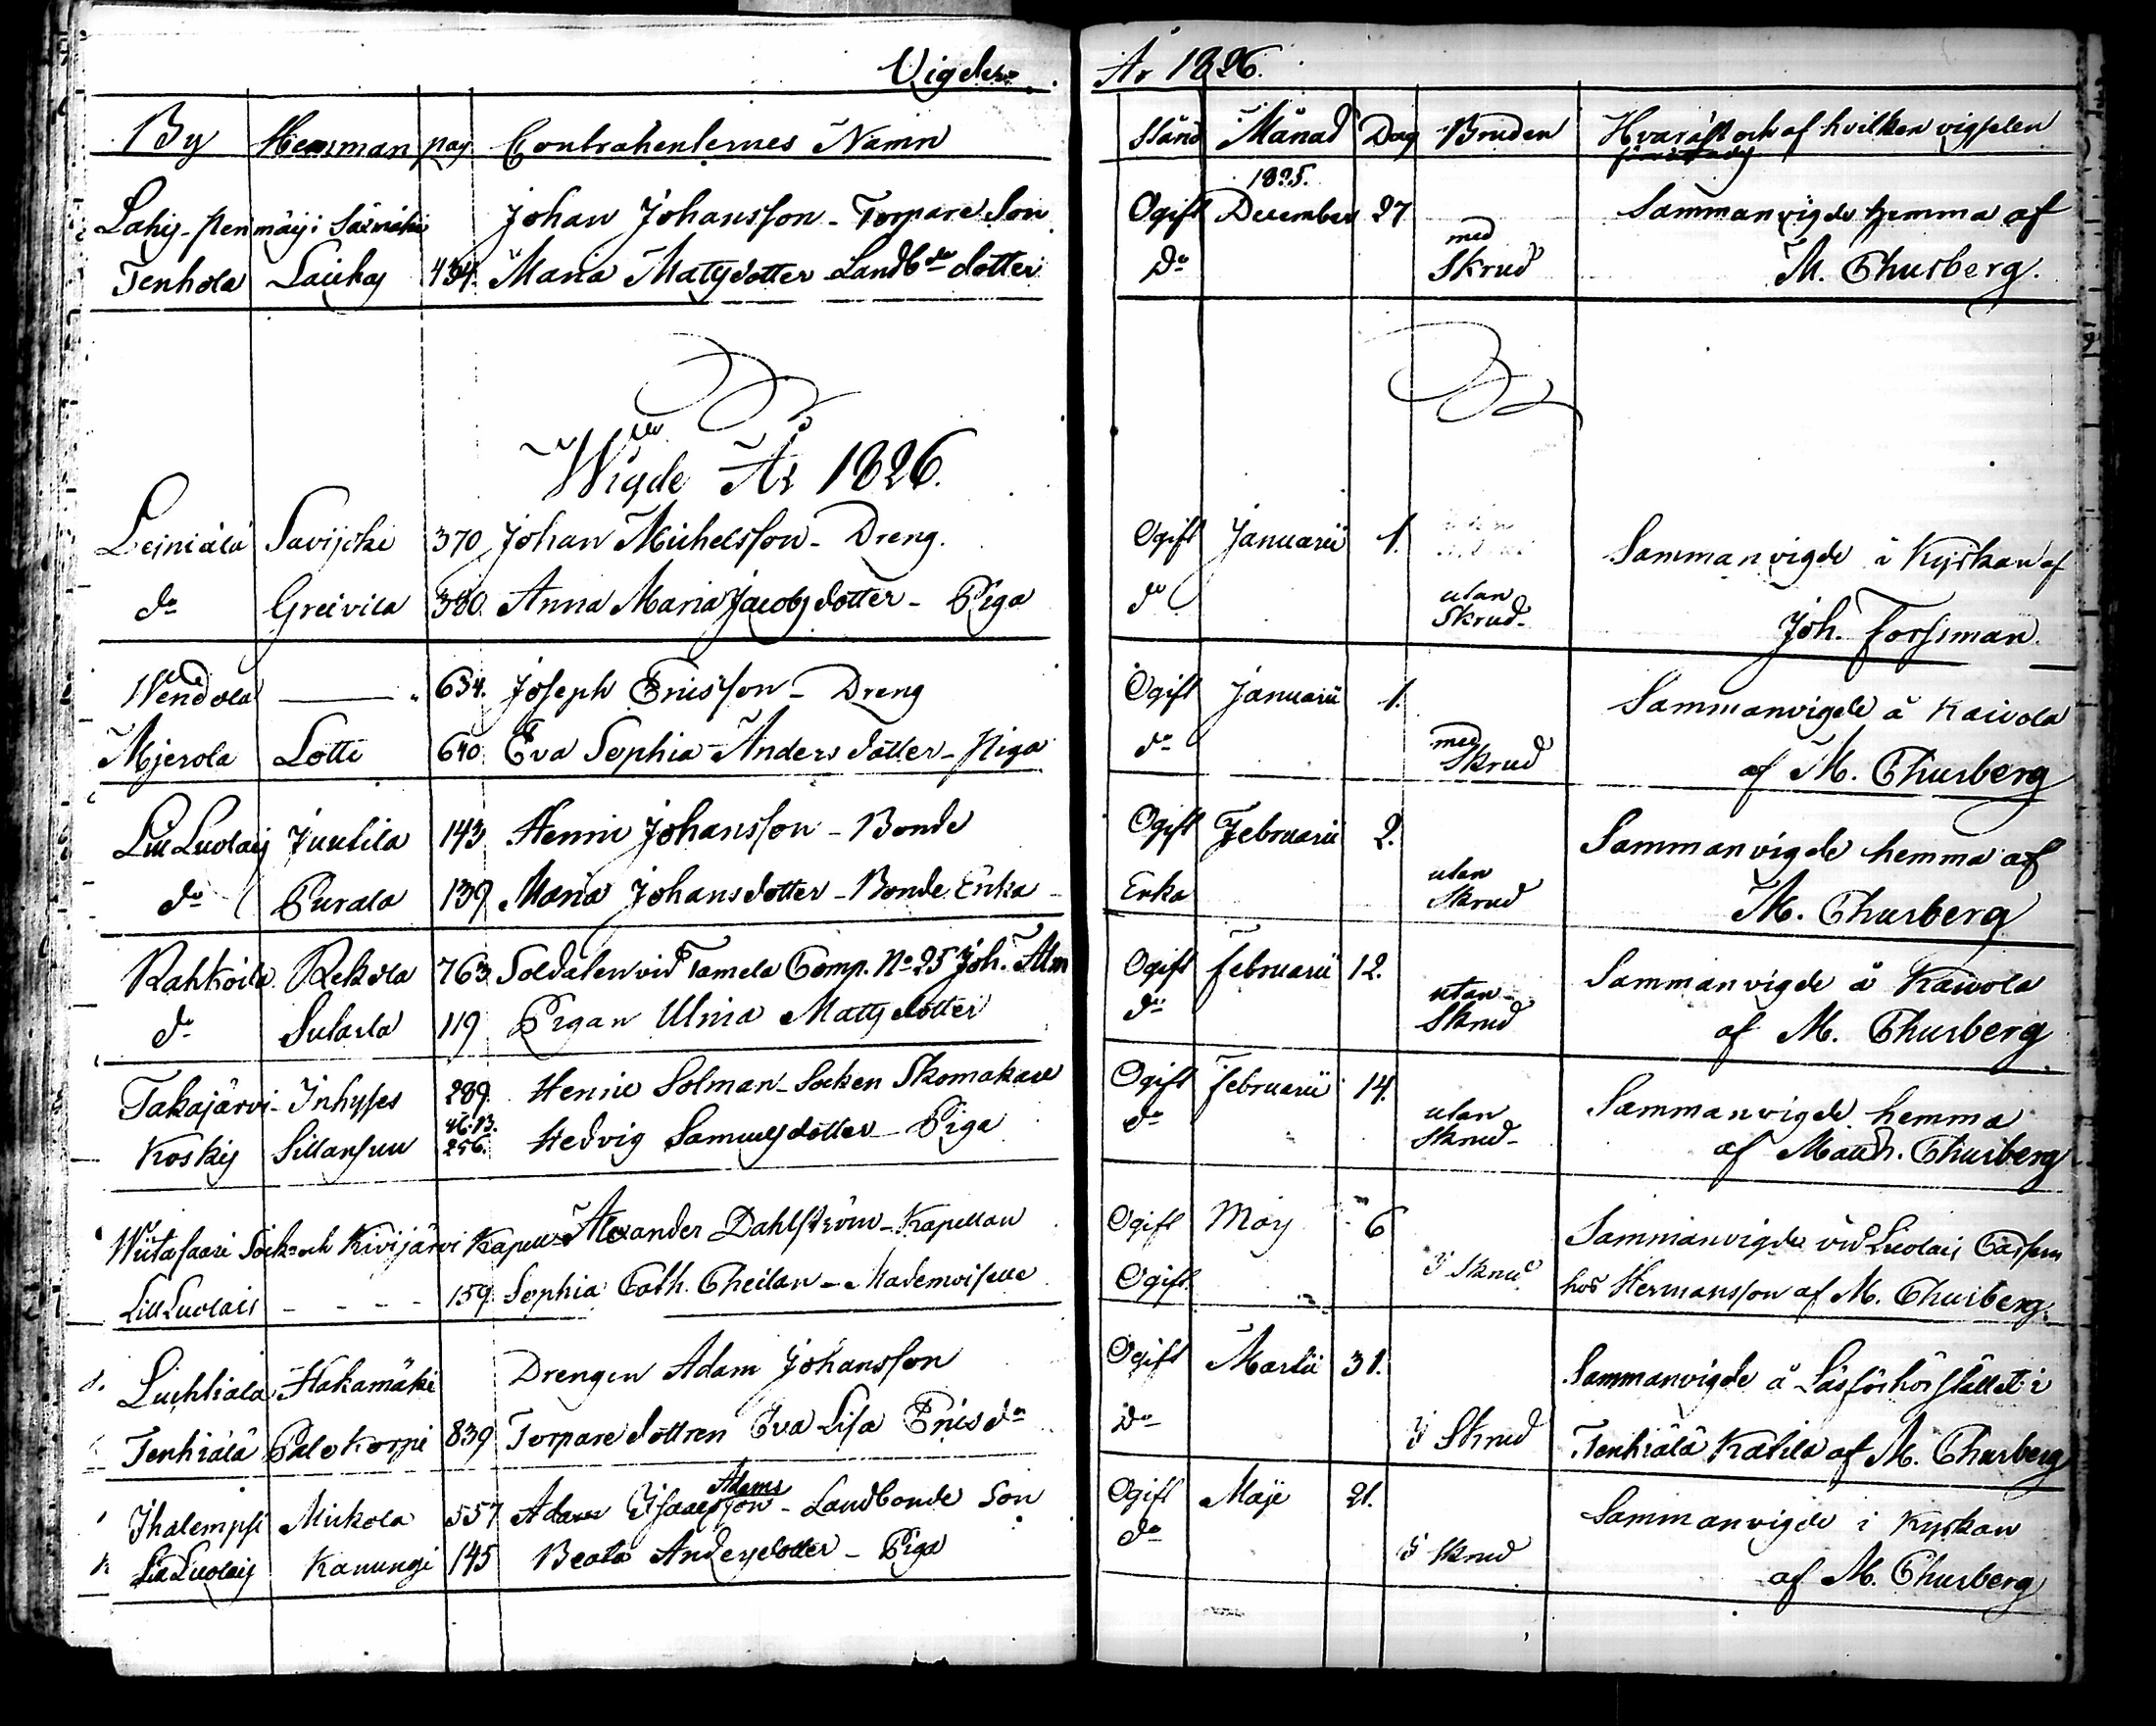 Vigde År 1826.
By Hemman pag Contrahenternes Namn Stånd Månad Dag Bruden Hvaräst och af hvilken vigselen
1825.
Johan Johansson - Torpare Son Ogift December 27 Sammanvigde hemma af
Tenhola Lauhaj 434. Maria Matsdotter Landbde dotter do med Skrud M. Thusberg.
Wigde År 1826.
Leiniälä Savijoki 370 Johan Michelsson - Dreng. Ogift Januarii 1. Sammanvigde i Kyrkan af
do Greivila 380. Anna Maria Jacobsdotter - Piga do utan Skrud. Joh. Forssman.
Wendola — 634. Joseph Ericsson - Dreng Ogift Januarii 1. Sammanvigde å Kaivola
Mjerola Lotti 640. Eva Sophia Andersdotter - Piga do med Skrud af M. Thusberg
Lill Luolais Juutila 143 Henric Johansson - Bonde Ogift Februarii 2. Sammanvigde hemma af
do Purala 139 Maria Johansdotter - Bonde Enka Enka utan Skrud M. Thusberg
Rahkoila Rekola 763 Soldaten vid Tamela Comp. No 25 Joh. Alm Ogift Februarii 12. Sammanvigde å Kaivola
do 119 Pigan Ulrica Mattsdotter do utan Skrud af M. Thusberg
Takajärvi - Inhyses 289. Henric Solman - Socken Skomakare Ogift Februarii 14. Sammanvigde hemma
Koskis Sillansuu 46.13. 256. Hedvig Samuelsdotter - Piga do utan Skrud - af Matth. Thusberg
Wiitasaari Sock: och Kivijärvi Kapell - Alexander Dahlström - Kapellan Ogift Maij 6 Sammanvigde vid Luolais
Lill Luolais - - - - 159. Sophia Cath. Theilan - Mademoiselle Ogift i Skrud hos Hermansson af M. Thusberg.
Luhtiala Hakamäki Drengen Adam Johansson Ogift Martii 31. Sammanvigde å Läsförhörstället i
Tenhiälä Palokorpi 839 Torpare dottren Eva Lisa Ericsdr do i Skrud Tenhiälä Katila af M. Thusberg
Adams
Ihalempsi Mickola 557 Adam Isaacsson - Landbonde Son Ogift Maji 21. Sammanvigde i Kyrkan
Lill Luolais Kanungi 145 Beata Andersdotter - Piga do i Skrud af M. Thusberg